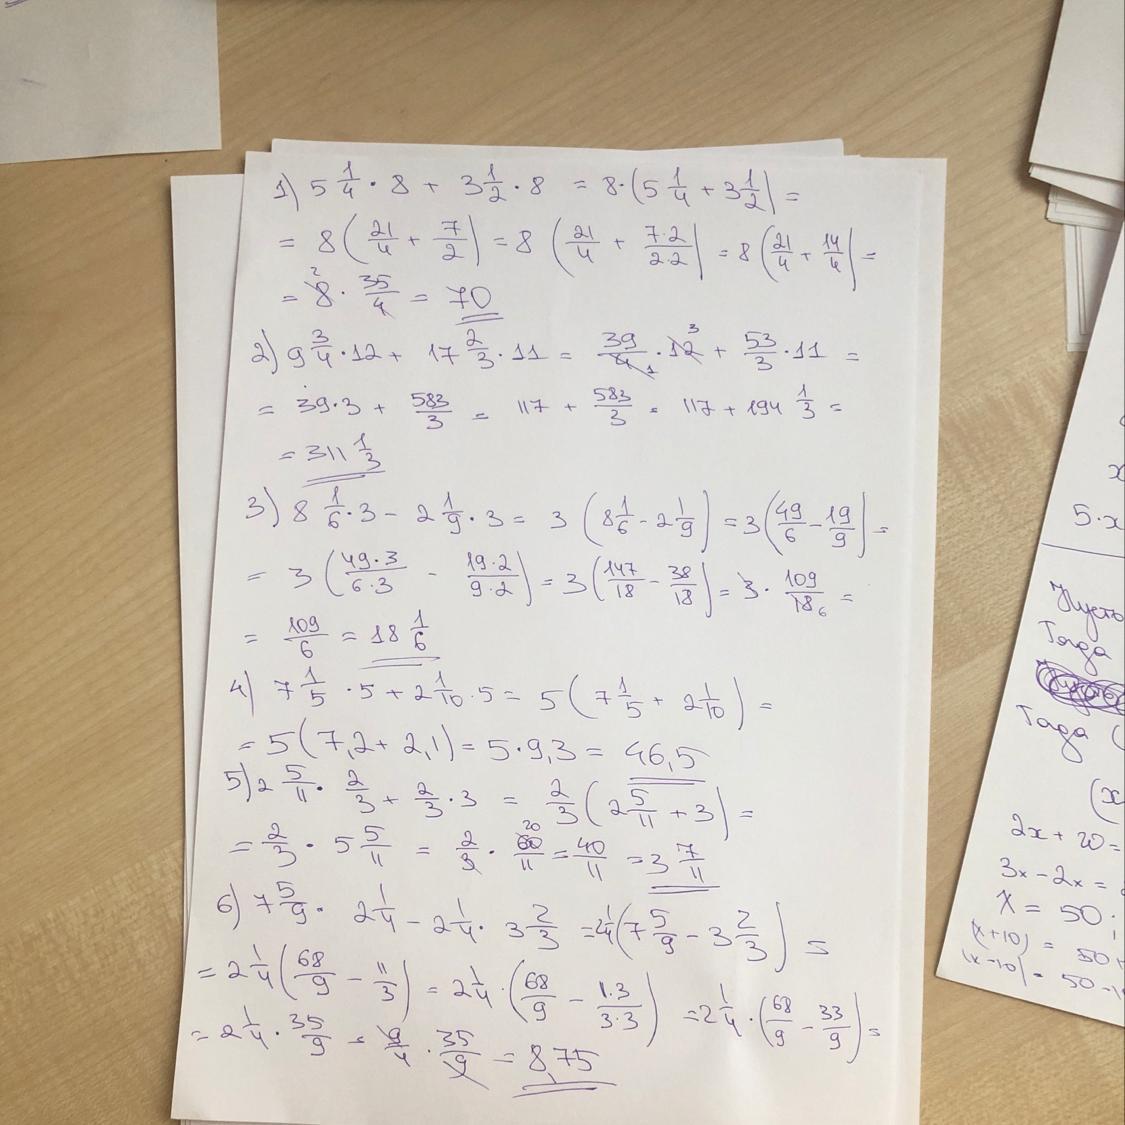 1) 5 1/4 · 8 + 3 1/2 · 8 = 8·(5 1/4 + 3 1/2) =
= 8 (21/4 + 7/2) = 8 (21/4 + 7·2/2·2) = 8 (21/4 + 14/4) =
= 8 2 · 35/4 = 70
2) 9 3/4 · 12 + 17 2/3 · 11 = 39/4 1 · 12 3 + 53/3 · 11 =
= 39·3 + 583/3 = 117 + 583/3 = 117 + 194 1/3 =
= 311 1/3
3) 8 1/6 · 3 - 2 1/9 · 3 = 3 (8 1/6 - 2 1/9) = 3 (49/6 - 19/9) =
= 3 (49·3/6·3 - 19·2/9·2) = 3 (147/18 - 38/18) = 3 · 109/18 6 =
= 109/6 = 18 1/6
4) 7 1/5 · 5 + 2 1/10 · 5 = 5 (7 1/5 + 2 1/10) =
= 5 (7,2 + 2,1) = 5 · 9,3 = 46,5
5) 2 5/11 · 2/3 + 2/3 · 3 = 2/3 (2 5/11 + 3) =
= 2/3 · 5 5/11 = 2/3 · 60 20/11 = 40/11 = 3 7/11
6) 7 5/9 · 2 1/4 - 2 1/4 · 3 2/3 = 2 1/4 (7 5/9 - 3 2/3) =
= 2 1/4 (68/9 - 11/3) = 2 1/4 · (68/9 - 11·3/3·3) = 2 1/4 · (68/9 - 33/9) =
= 2 1/4 · 35/9 = 9/4 · 35/9 = 8,75
x
5·x
Пусто
Тогда
Тогда (
(x
2x + 20 =
3x - 2x =
x = 50
(x+10) = 50
(x-10) = 50 -